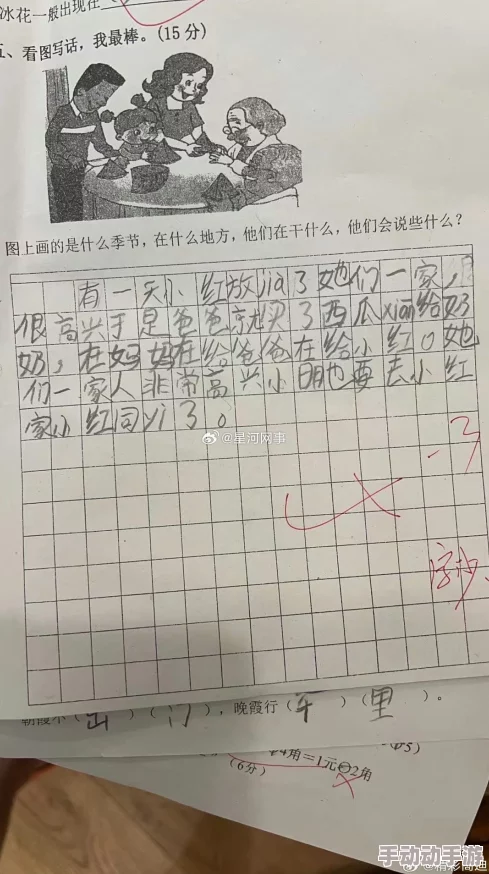 冰花一般出现在
五、看图写话，我最棒。(15分)
图上画的是什么季节，在什么地方，他们在干什么，他们会说些什么？
有一天小红放jia了她们一家，
很高兴于是爸爸就买了西瓜xian给奶
奶，在妈妈在给爸爸在给小红。她
们一家人非常高兴小明也要去小红
家小红同yi了。
@星河网事
-3
字少
朝霞不（出）（门），晚霞行（千）（里）。
4角＝1元○2角
(6分)
手动动手游